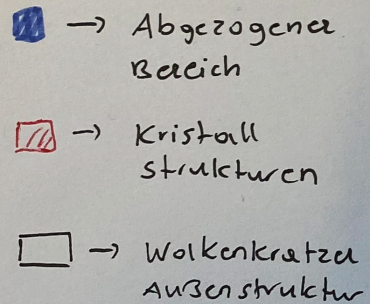 → Abgezogener
Bereich
→ Kristall
strukturen
→ Wolkenkratzer
Außenstruktur